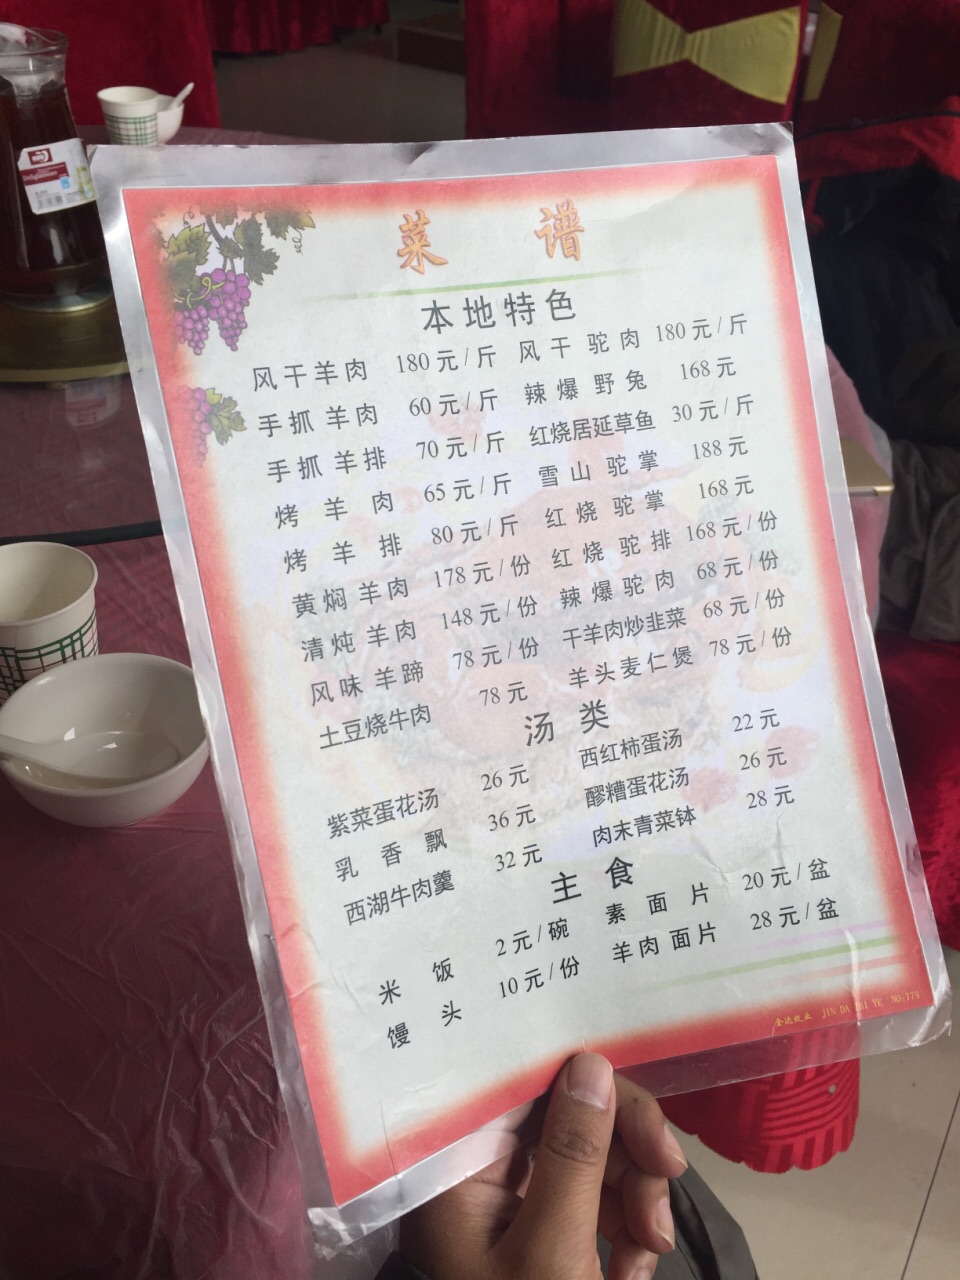 菜谱
本地特色
风干羊肉 180元/斤 风干驼肉 180元/斤
手抓羊肉 60元/斤 辣爆野兔 168元
手抓羊排 70元/斤 红烧居延草鱼 30元/斤
烤羊肉 65元/斤 雪山驼掌 188元
烤羊排 80元/斤 红烧驼掌 168元
黄焖羊肉 178元/份 红烧驼排 168元/份
清炖羊肉 148元/份 辣爆驼肉 68元/份
风味羊蹄 78元/份 干羊肉炒韭菜 68元/份
土豆烧牛肉 78元 羊头麦仁煲 78元/份
汤类
紫菜蛋花汤 26元 西红柿蛋汤 22元
乳香飘 36元 醪糟蛋花汤 26元
西湖牛肉羹 32元 肉末青菜钵 28元
主食
米饭 2元/碗 素面片 20元/盆
馒头 10元/份 羊肉面片 28元/盆
金达纸业 JIN DA ZHI YE NO:779